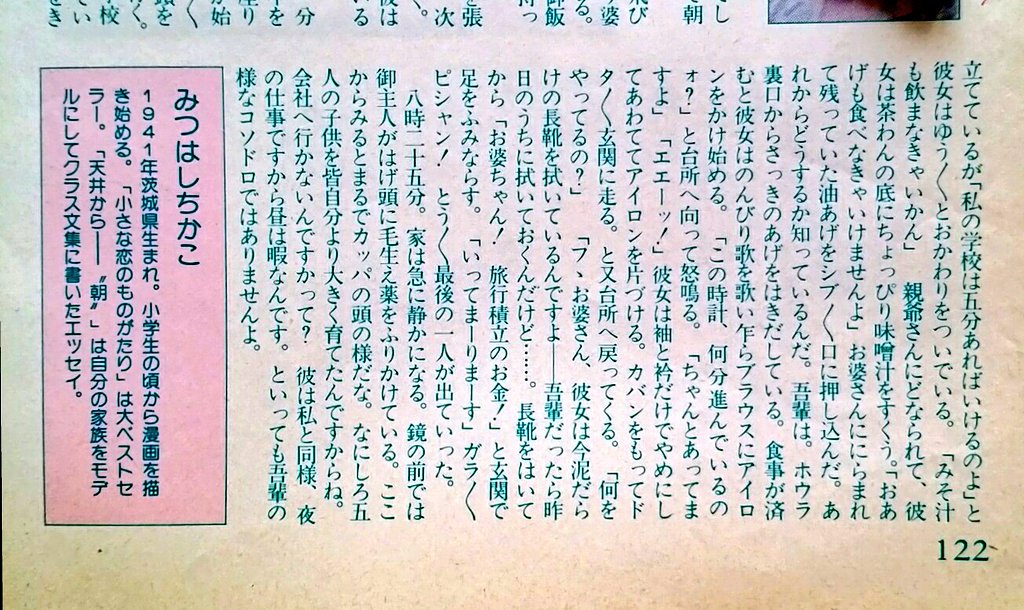 立てているが「私の学校は五分あればいけるのよ」と
彼女はゆう〳〵とおかわりをついでいる。「みそ汁
も飲まなきゃいかん」　親爺さんにどなられて、彼
女は茶わんの底にちょっぴり味噌汁をすくう。「おあ
げも食べなきゃいけませんよ」お婆さんににらまれ
て残っていた油あげをシブ〳〵口に押し込んだ。あ
れからどうするか知っているんだ。吾輩は。ホウラ
裏口からさっきのあげをはきだしている。食事が済
むと彼女はのんびり歌を歌い乍らブラウスにアイロ
ンをかけ始める。「この時計、何分進んでいるの
ォ？」と台所へ向って怒鳴る。「ちゃんとあってま
すよ」「エエーッ！」彼女は袖と衿だけでやめにし
てあわててアイロンを片づける。カバンをもってド
タ〳〵玄関に走る。と又台所へ戻ってくる。「何を
やってるの？」　「フヽお婆さん、彼女は今泥だら
けの長靴を拭いているんですよ――吾輩だったら昨
日のうちに拭いておくんだけど……。長靴をはいて
から「お婆ちゃん！　旅行積立のお金！」と玄関で
足をふみならす。「いってまーりまーす」ガラ〳〵
ピシャン！　とう〳〵最後の一人が出ていった。
　八時二十五分。家は急に静かになる。鏡の前では
御主人がはげ頭に毛生え薬をふりかけている。ここ
からみるとまるでカッパの頭の様だな。なにしろ五
人の子供を皆自分より大きく育てたんですからね。
会社へ行かないんですかって？　彼は私と同様、夜
の仕事ですから昼は暇なんです。といっても吾輩の
様なコソドロではありませんよ。
みつはしちかこ
1941年茨城県生まれ。小学生の頃から漫画を描
き始める。「小さな恋のものがたり」は大ベストセ
ラー。「天井から――〝朝〟」は自分の家族をモデ
ルにしてクラス文集に書いたエッセイ。
122